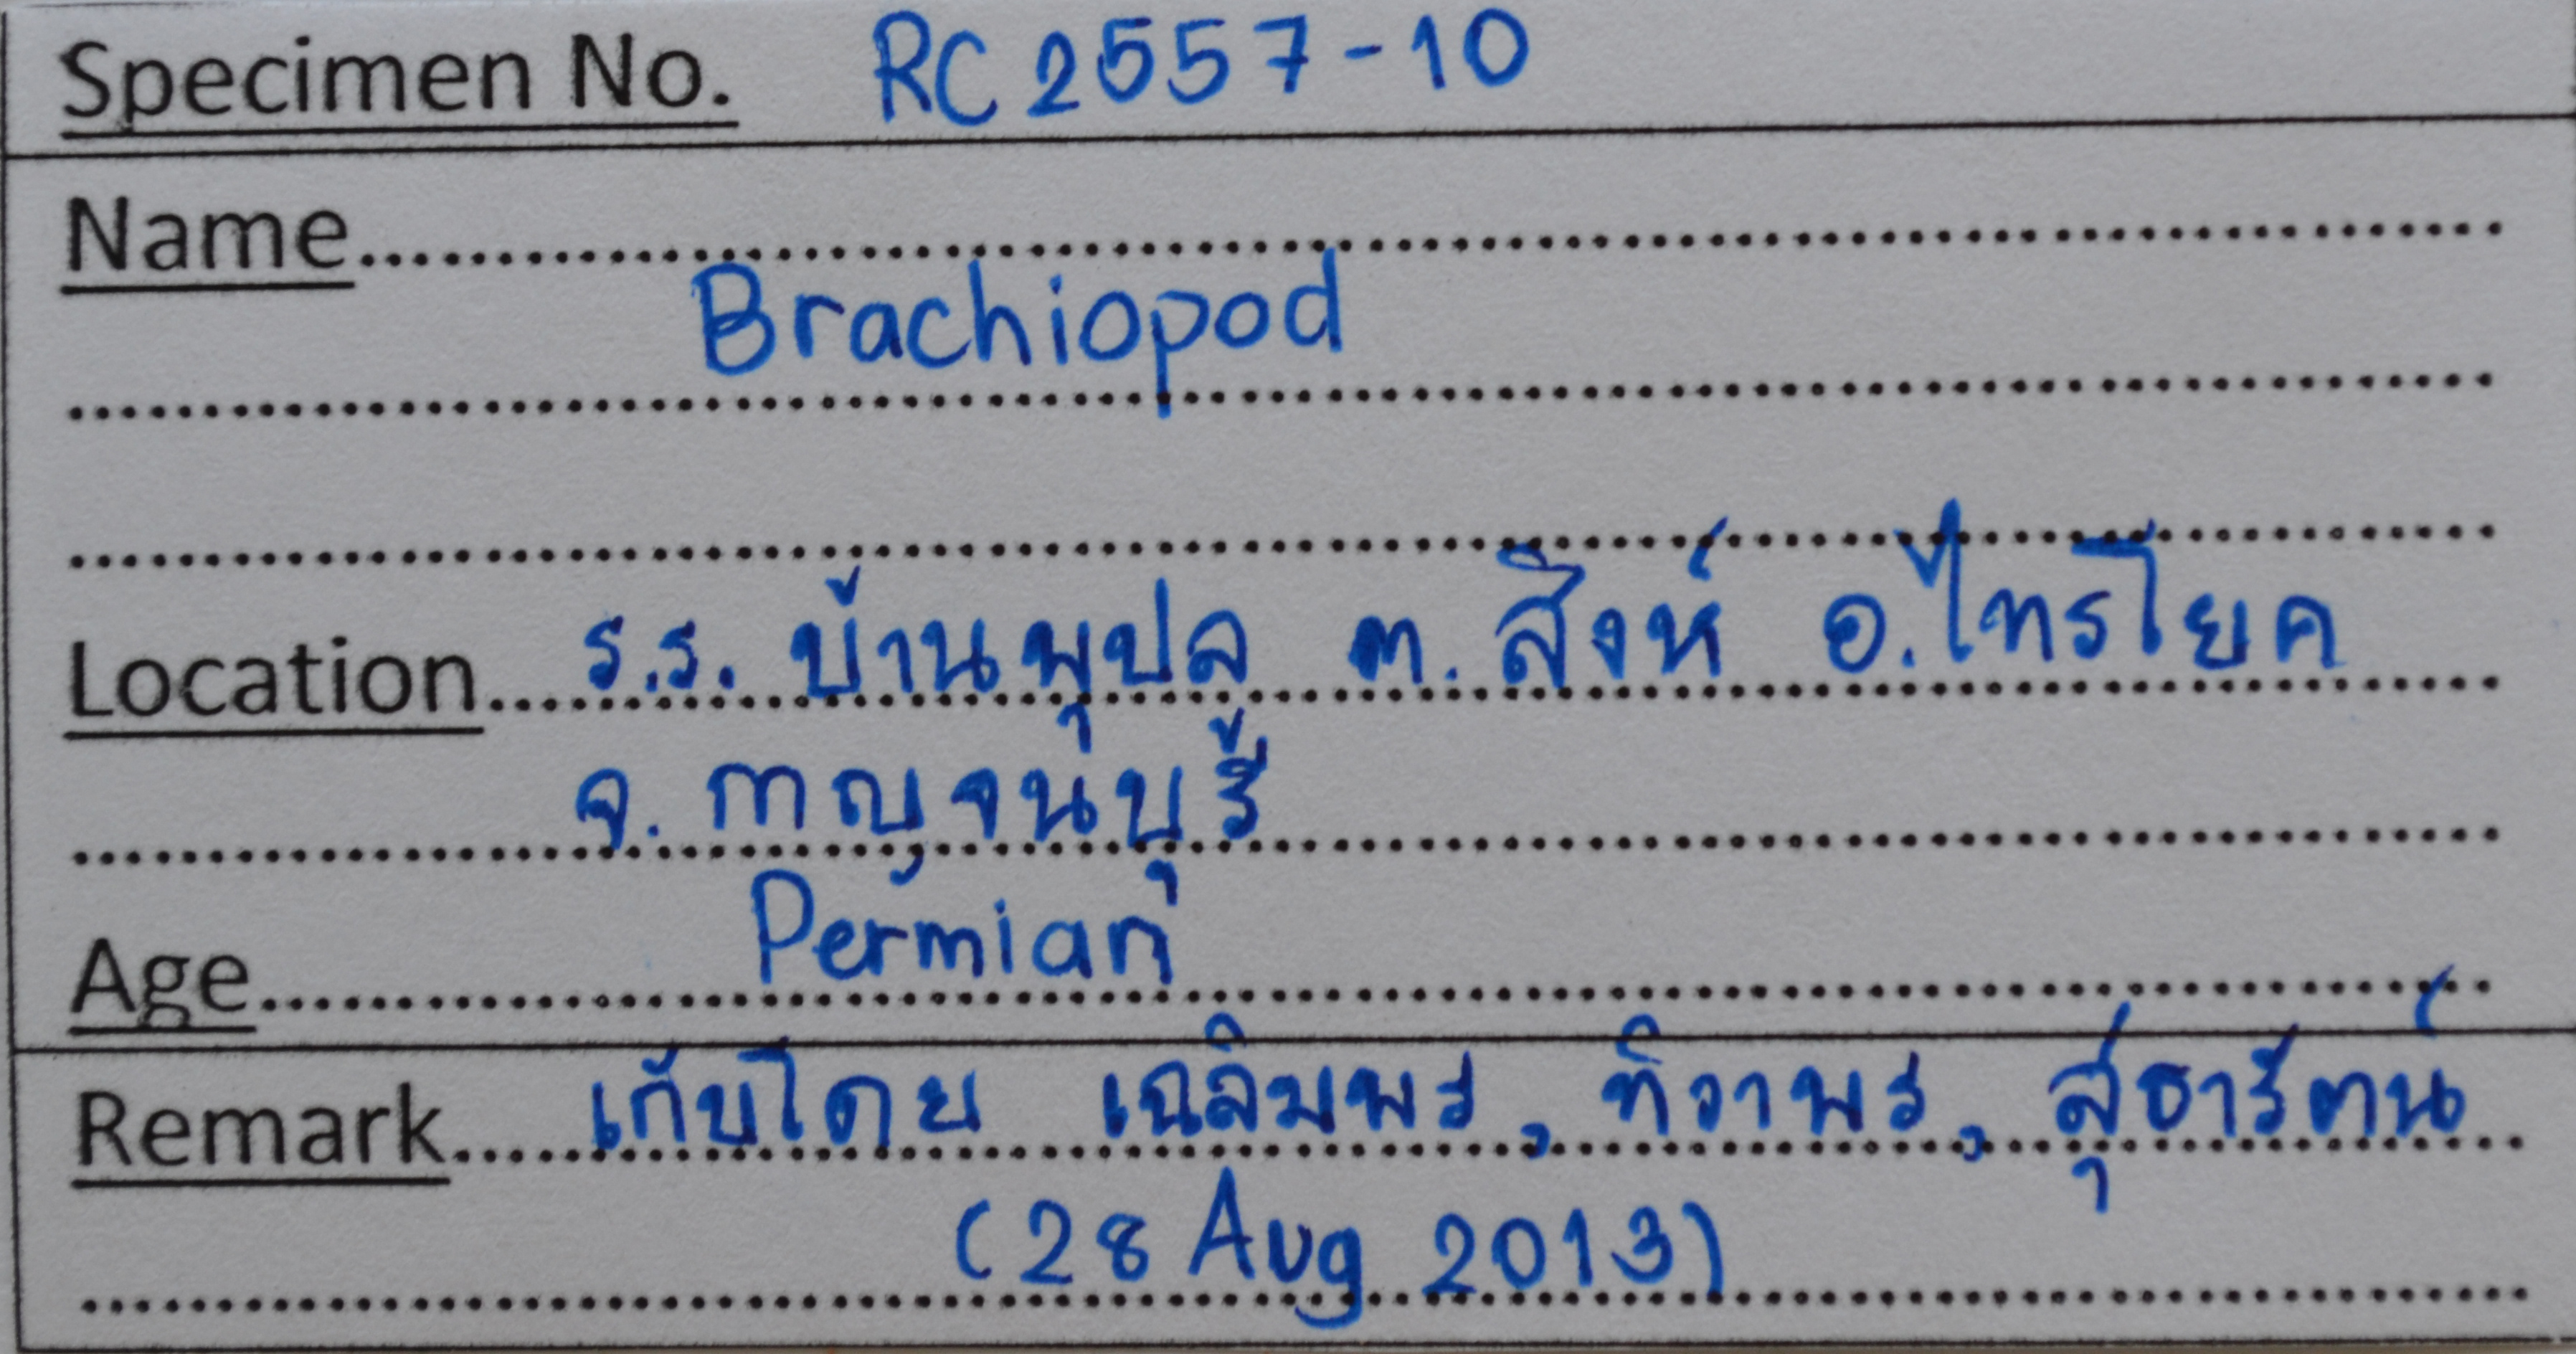 Specimen No. RC 2557-10
Name
Brachiopod
Location ร.ร. บ้านพุปลู ต. สิงห์ อ. ไทรโยค
จ. กาญจนบุรี
Age Permian
Remark เก็บโดย เฉลิมพร, ทิวาพร, สุธารัตน์
(28 Aug 2013)